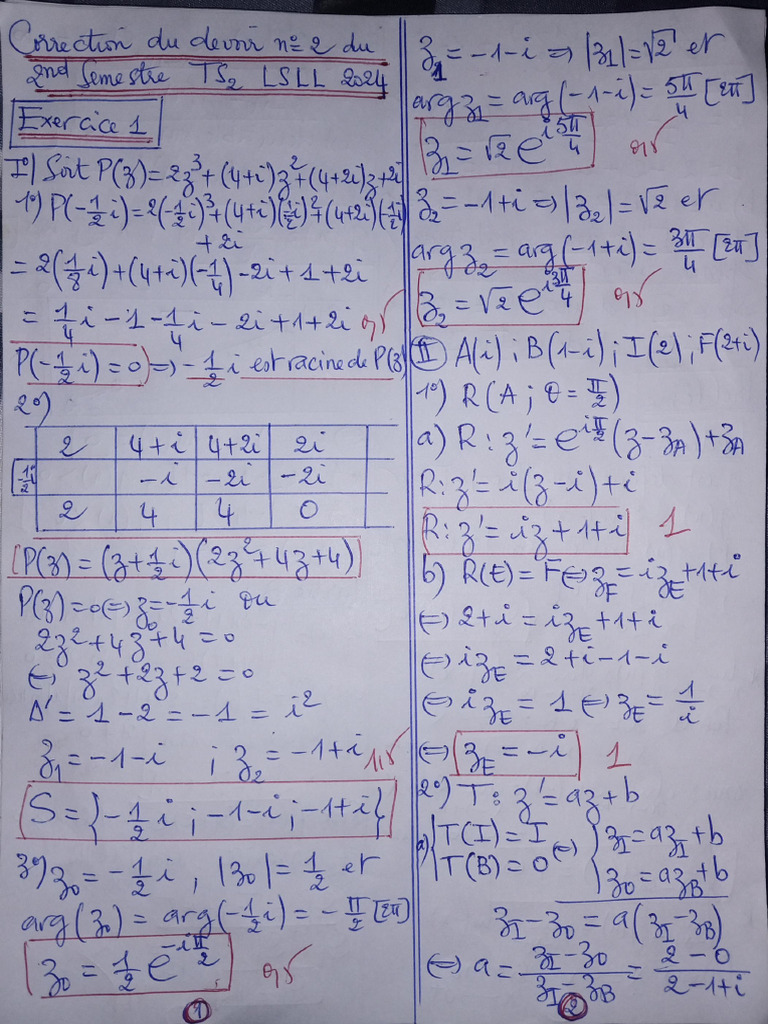 Correction du devoir n° 2 du
2nd Semestre TS₂ LSLL 2024
Exercice 1
I°) Soit P(z)=2z³+(4+i)z²+(4+2i)z+2i
1°) P(-1/2 i)=2(-1/2 i)³+(4+i)(-1/2 i)²+(4+2i)(-1/2 i)
+2i
=2(1/8 i)+(4+i)(-1/4)-2i+1+2i
= 1/4 i -1 -1/4 i -2i+1+2i
P(-1/2 i)=0 ⟹ -1/2 i est racine de P(z)
2°)
2 | 4+i | 4+2i | 2i
-1/2 i | | -i | -2i | -2i
2 | 4 | 4 | 0
P(z)=(z+1/2 i)(2z²+4z+4)
P(z)=0 ⟺ z₀=-1/2 i ou
2z²+4z+4=0
⟺ z²+2z+2=0
Δ'=1-2=-1=i²
z₁=-1-i ; z₂=-1+i
S={-1/2 i ; -1-i ; -1+i}
3°) z₀=-1/2 i , |z₀|=1/2 et
arg(z₀)=arg(-1/2 i)=-π/2 [2π]
z₀=1/2 e^(-iπ/2)
1
z₁=-1-i ⟹ |z₁|=√2 et
arg z₁=arg(-1-i)=5π/4 [2π]
z₁=√2 e^(i5π/4)
z₂=-1+i ⟹ |z₂|=√2 et
arg z₂=arg(-1+i)=3π/4 [2π]
z₂=√2 e^(i3π/4)
II A(i) ; B(1-i) ; I(2) ; F(2+i)
1°) R(A ; θ=π/2)
a) R : z'=e^(iπ/2)(z-z_A)+z_A
R : z'=i(z-i)+i
R : z'=iz+1+i 1
b) R(E)=F ⟺ z_F=iz_E+1+i
⟺ 2+i=iz_E+1+i
⟺ iz_E=2+i-1-i
⟺ iz_E=1 ⟺ z_E=1/i
⟺ z_E=-i 1
2°) T : z'=az+b
a) {T(I)=I ⟺ {z_I=az_I+b
T(B)=O z_O=az_B+b
z_I-z_O=a(z_I-z_B)
⟺ a=(z_I-z_O)/(z_I-z_B)=(2-0)/(2-1+i)
2